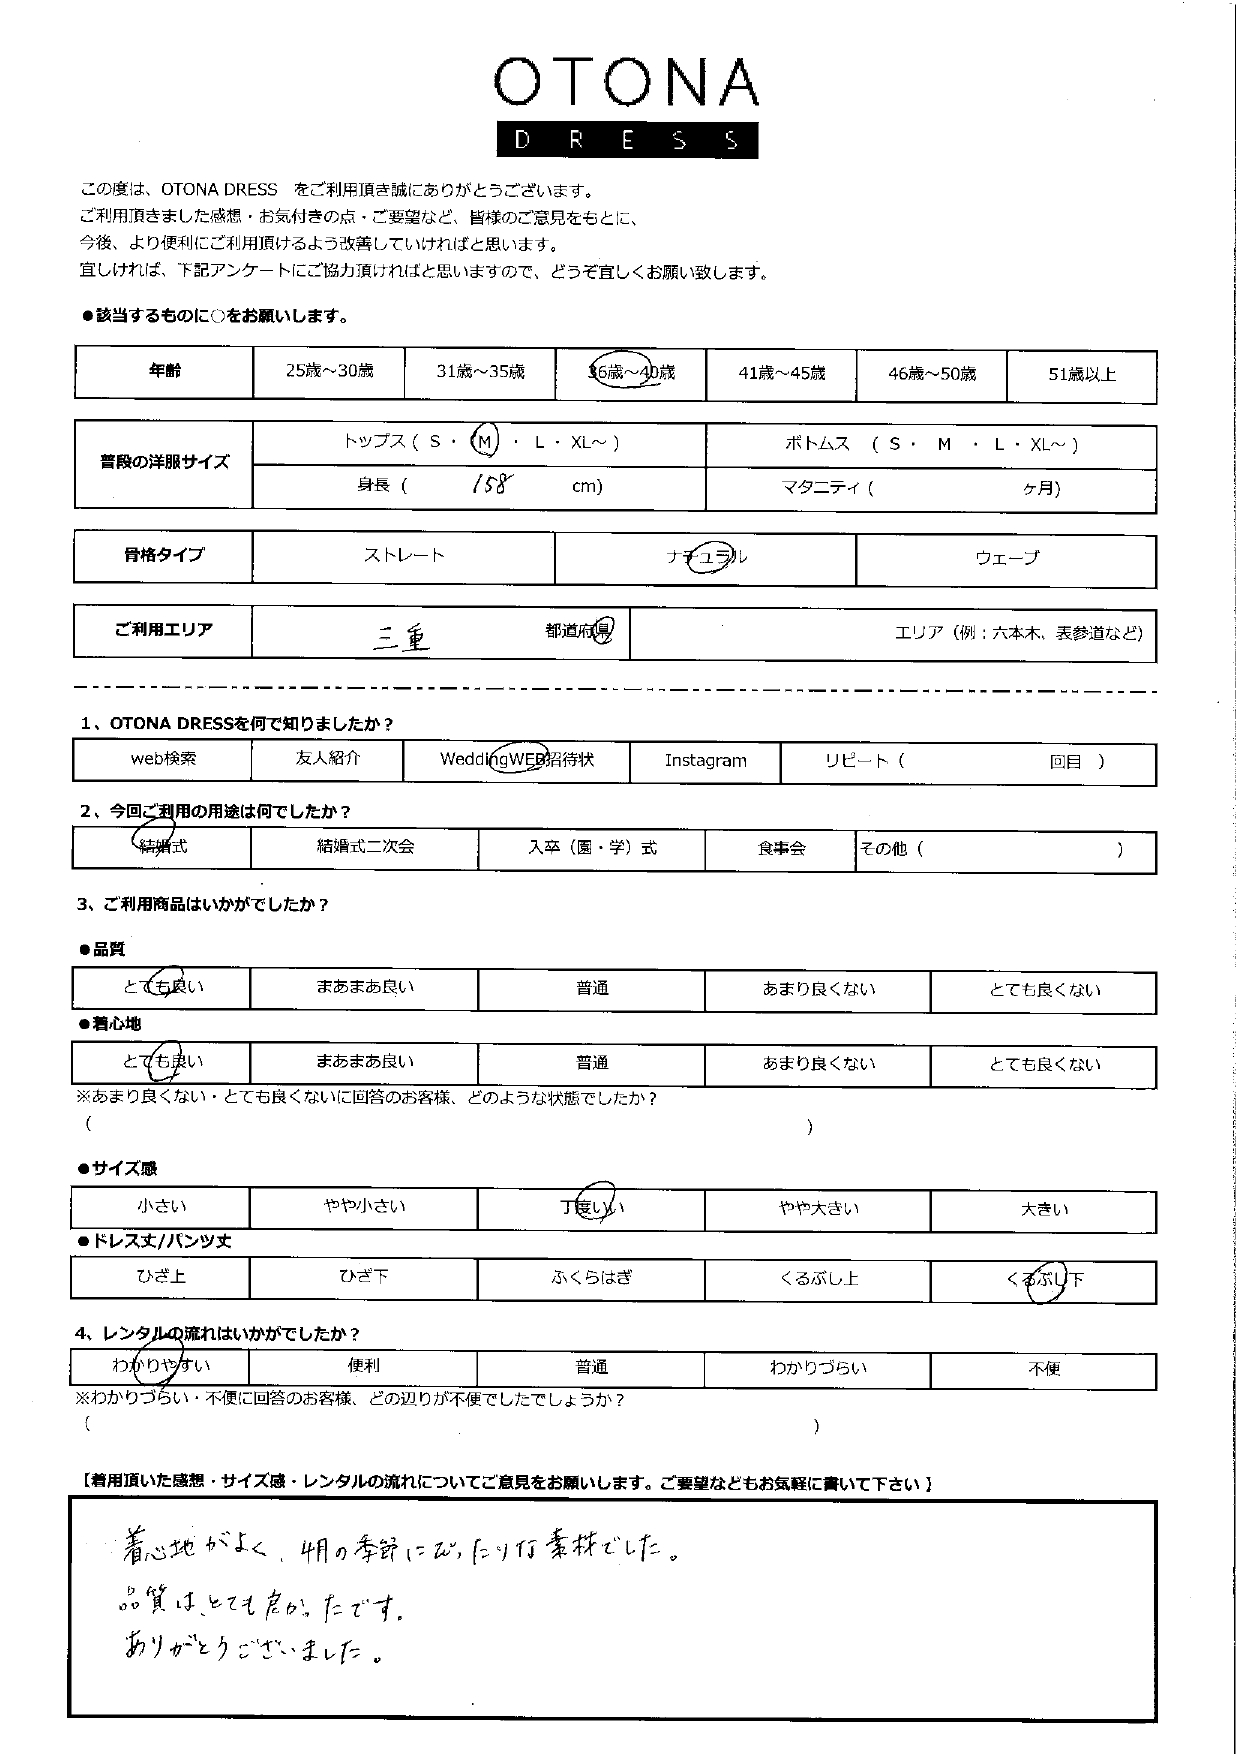 OTONA
DRESS
この度は、OTONA DRESS　をご利用頂き誠にありがとうございます。
ご利用頂きました感想・お気付きの点・ご要望など、皆様のご意見をもとに、
今後、より便利にご利用頂けるよう改善していければと思います。
宜しければ、下記アンケートにご協力頂ければと思いますので、どうぞ宜しくお願い致します。
●該当するものに○をお願いします。
年齢 25歳～30歳 31歳～35歳 36歳～40歳 41歳～45歳 46歳～50歳 51歳以上
普段の洋服サイズ トップス ( S ・ M ・ L ・ XL～ ) ボトムス ( S ・ M ・ L ・ XL～ )
身長 ( 158 cm) マタニティ ( ヶ月)
骨格タイプ ストレート ナチュラル ウェーブ
ご利用エリア 三重 都道府県 エリア（例：六本木、表参道など）
1、OTONA DRESSを何で知りましたか？
web検索 友人紹介 WeddingWEB招待状 Instagram リピート ( 回目 )
2、今回ご利用の用途は何でしたか？
結婚式 結婚式二次会 入卒（園・学）式 食事会 その他 ( )
3、ご利用商品はいかがでしたか？
●品質
とても良い まあまあ良い 普通 あまり良くない とても良くない
●着心地
とても良い まあまあ良い 普通 あまり良くない とても良くない
※あまり良くない・とても良くないに回答のお客様、どのような状態でしたか？
( )
●サイズ感
小さい やや小さい 丁度いい やや大きい 大きい
●ドレス丈/パンツ丈
ひざ上 ひざ下 ふくらはぎ くるぶし上 くるぶし下
4、レンタルの流れはいかがでしたか？
わかりやすい 便利 普通 わかりづらい 不便
※わかりづらい・不便に回答のお客様、どの辺りが不便でしたでしょうか？
( )
【着用頂いた感想・サイズ感・レンタルの流れについてご意見をお願いします。ご要望などもお気軽に書いて下さい】
着心地がよく、4月の季節にぴったりな素材でした。
品質は、とても良かったです。
ありがとうございました。